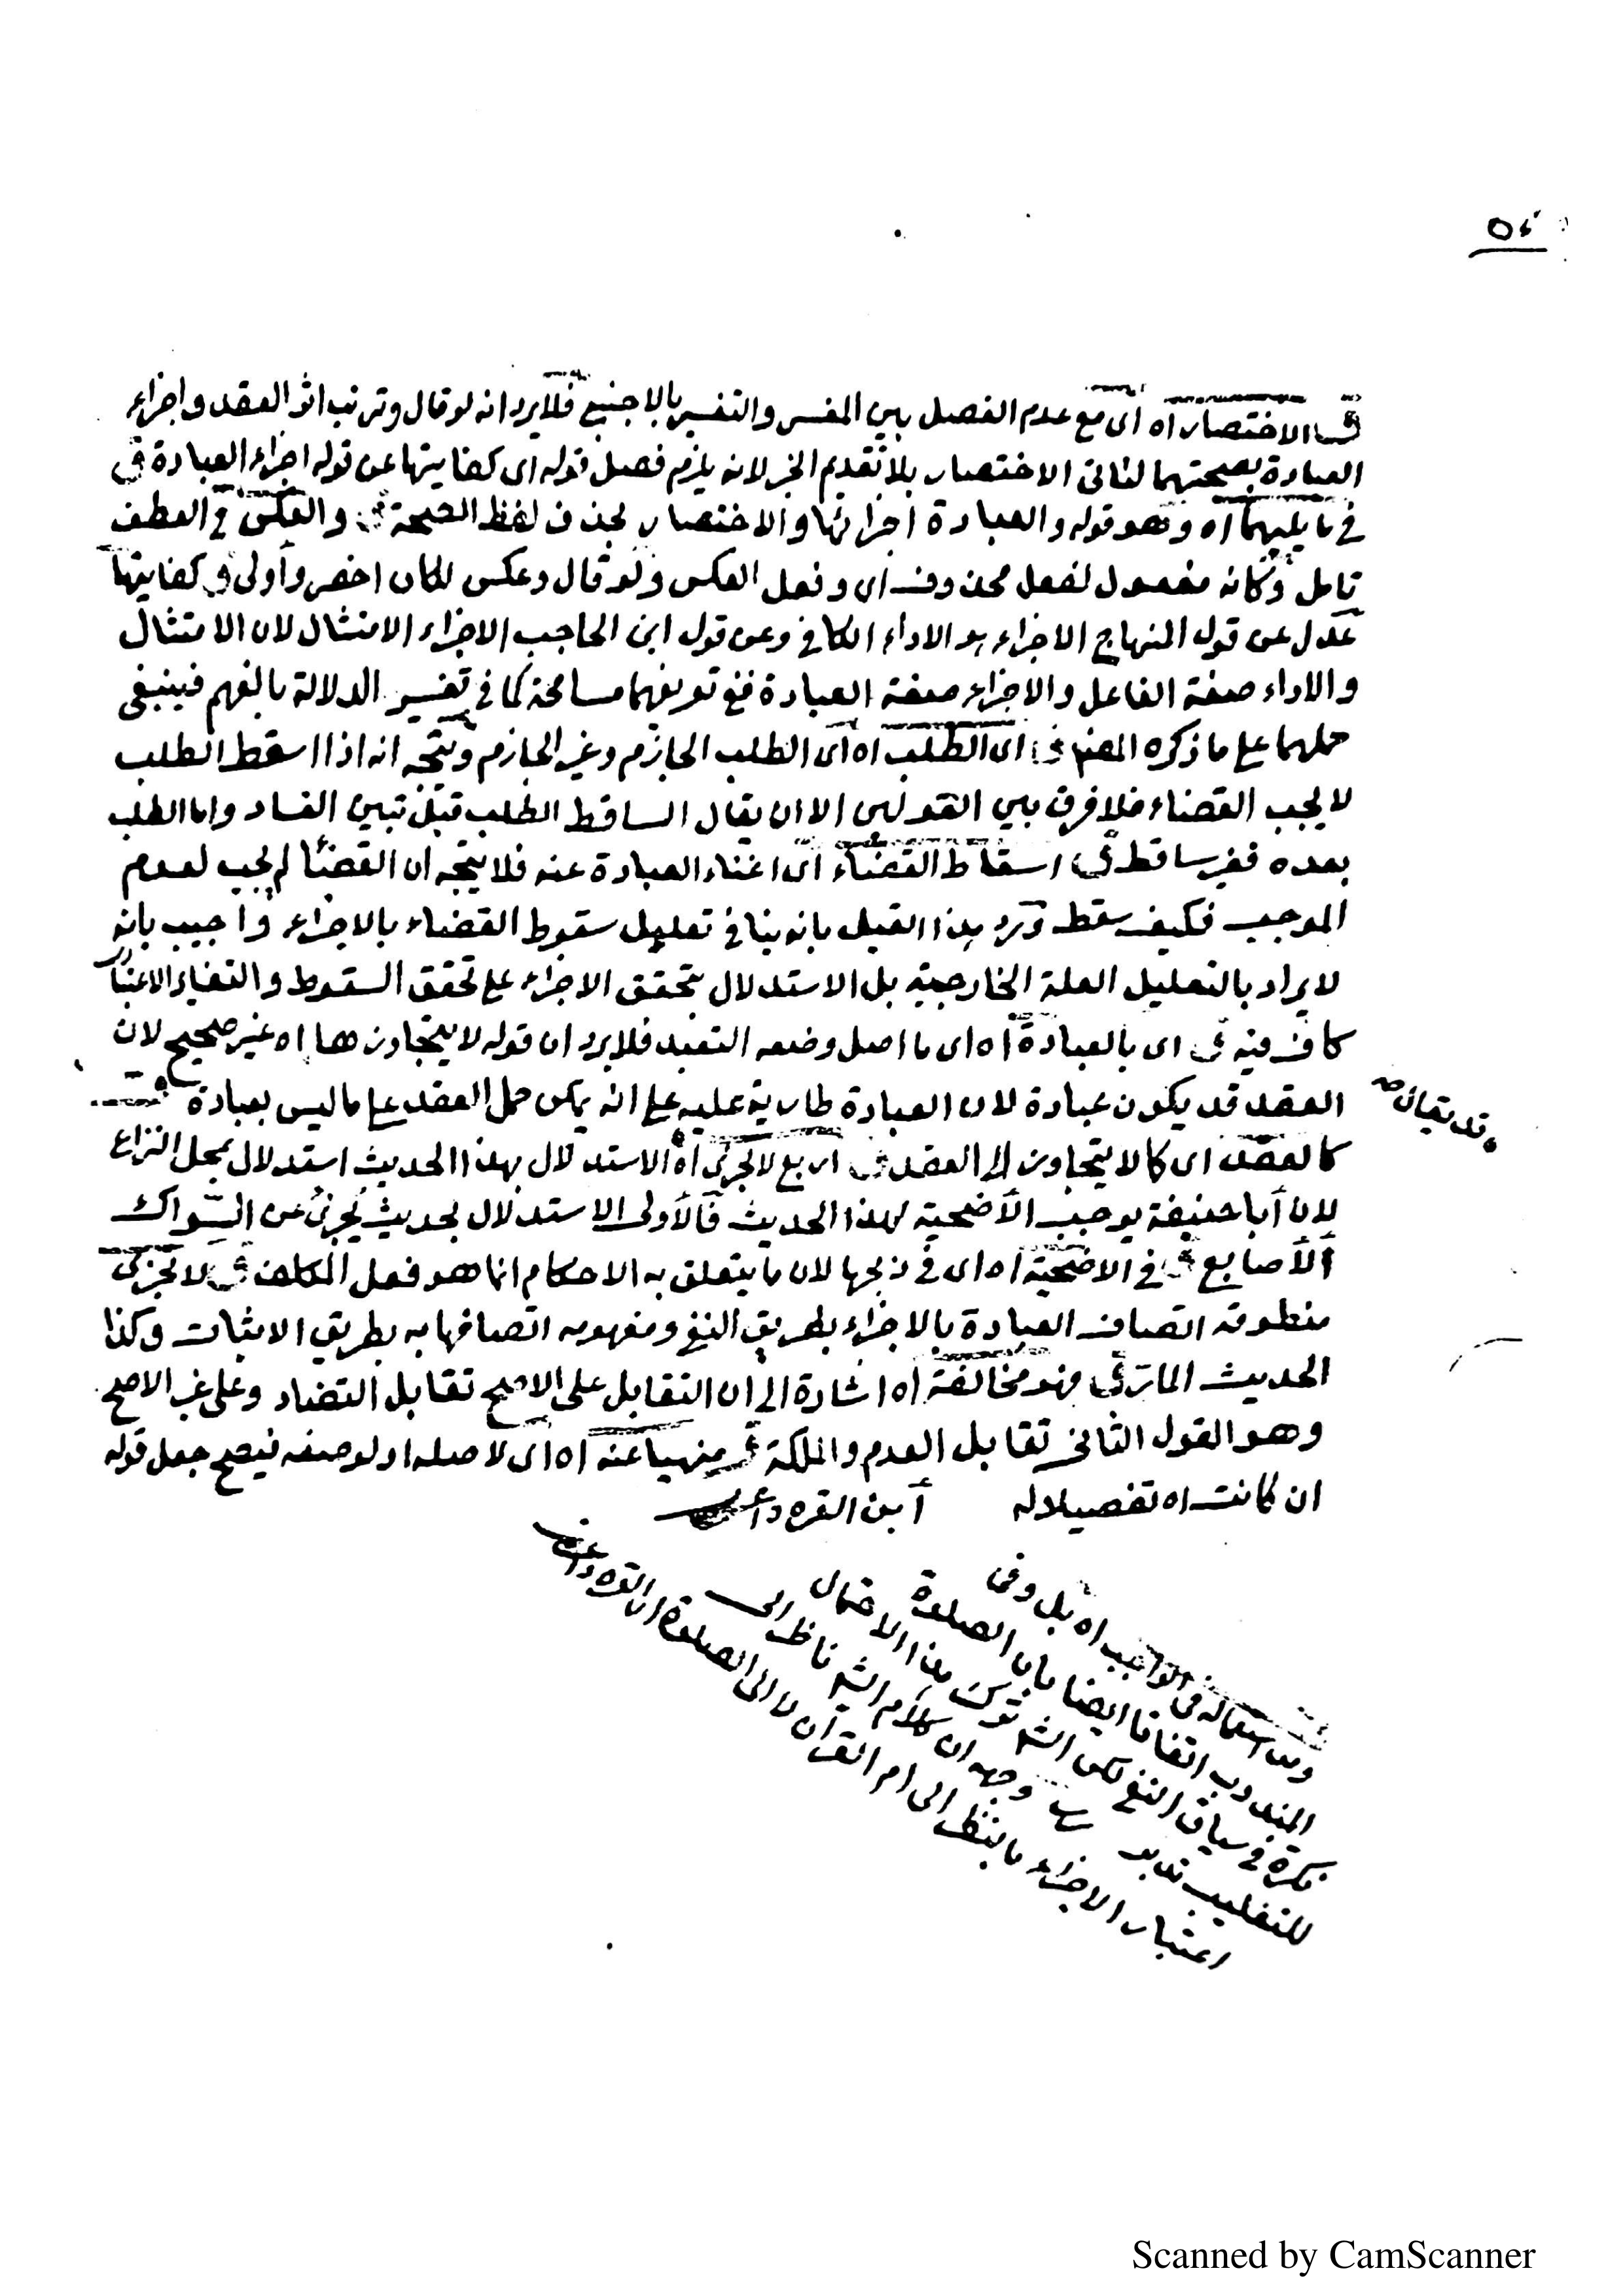 ٥٤
الاختصار اه اى مع عدم الفصل بين المفسر والتفسير بالاجنبي فلا يرد انه لو قال وترتب اثر العقد واجزاء
العبادة بصحتهما لتاتى الاختصار بلا تقديم الخبر لانه يلزم فصل قوله اى كفايتها عن قوله اجزاء العبادة ق
فى ما يليهما اه وهو قوله والعبادة اجزائها والاختصار بحذف لفظ الصحة ق والعكس فى العطف
تامل وكانه مفعول لفعل محذوف اى وفعل العكس ولو قال وعكس لكان اخصر وأولى ق كفايتها
عدل عن قول المنهاج الاجزاء هو الاداء الكافى وعن قول ابن الحاجب الاجزاء الامتثال لان الامتثال
والاداء صفة الفاعل والاجزاء صفة العبادة ففى تعريفهما مسامحة كما فى تفسير الدلالة بالفهم فينبغى
حملهما على ما ذكره المصنف ق اى الطلب اه اى الطلب الجازم وغير الجازم ويتجه انه اذا اسقط الطلب
لا يجب القضاء فلا فرق بين القولين الا ان يقال الساقط الطلب قبل تبين الفساد واما الطلب
بعده فغير ساقط ق اسقاط القضاء اى اغناء العبادة عنه فلا يتجه ان القضاء لم يجب لعدم
الموجب فكيف سقط ورد هذا القيل بانه ينافى تعليل سقوط القضاء بالاجزاء واجيب بانه
لا يراد بالتعليل العلة الخارجية بل الاستدلال بتحقق الاجزاء على تحقق السقوط والتغاير الاعتبارى
كاف فيه ق اى بالعبادة اه اى ما اصل وضعه التعبد فلا يرد ان قوله لا يتجاوزها اه غير صحيح لان
العقد قد يكون عبادة لان العبادة طارية عليه على انه يمكن حمل العقد على ما ليس بعبادة
قد يقال صح
كالعقد اى كما لا يتجاوز الى العقد ق اربع لا تجزئ اه الاستدلال بهذا الحديث استدلال بمحل النزاع
لان أبا حنيفة يوجب الأضحية لهذا الحديث فالأولى الاستدلال بحديث يجزئ من السواك
الأصابع ق فى الاضحية اه اى فى ذبحها لان ما يتعلق به الاحكام انما هو فعل المكلف ق لا تجزئ
منطوقه اتصاف العبادة بالاجزاء بطريق النفى ومفهومه اتصافها به بطريق الاثبات وكذا
الحديث المار ق فهو مخالفة اه اشارة الى ان التقابل على الاصح تقابل التضاد وعلى غير الاصح
وهو القول الثانى تقابل العدم والملكة ق منهيا عنه اه اى لاصله او لوصفه فيصح جعل قوله
ان كانت اه تفصيلا له أبن القره داغى
ومن استعماله فى الواجب اه بل وفى
المندوب اتفاقا ايضا فان الصلوة
نكرة فى سياق النفى لكن الش ترك هذا الاحتمال
للتغليب تدبر وجهه ان كلام الش ناظر الى
اعتبار الاجزاء ما ينظر الى ام القرآن لا الى الصلوة ابن القره داغى
Scanned by CamScanner